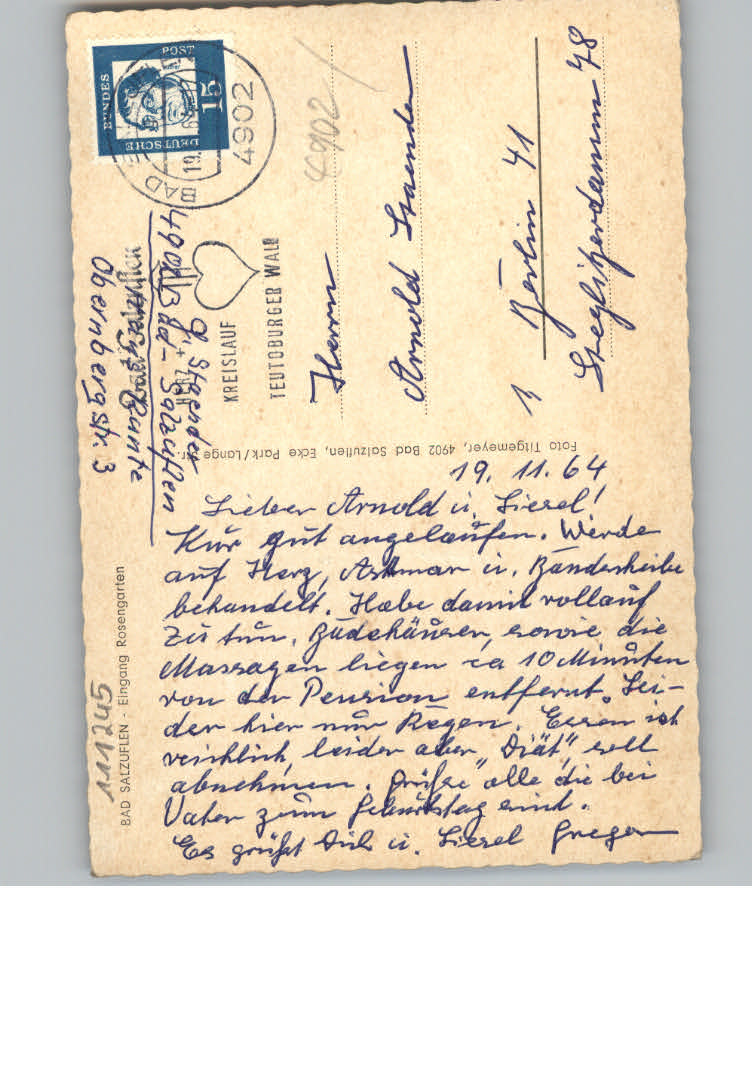 19. 11. 64
Lieber Arnold u. Liesel!
Kur gut angelaufen. Werde
auf Herz, Asthmar u. Bandscheibe
behandelt. Habe damit vollauf
zu tun. Badehäuser, sowie die
Massagen liegen ca 10 Minuten
von der Pension entfernt. Lei-
der hier nur Regen. Essen ist
reichlich, leider aber „Diät", soll
abnehmen. Grüße alle die bei
Vater zum Geburtstag sind.
Es grüßt Dich u. Liesel Gregor
BAD SALZUFLEN - Eingang Rosengarten
111245
Foto Tilgemeyer, 4902 Bad Salzuflen, Ecke Park/Lange Str.
4902 Bad-Salzuflen
Obernbergstr. 3
DEUTSCHE
BUNDES
POST
15
BAD
4902
19.
HERZ +
KREISLAUF
TEUTOBURGER WALD
4902
Herrn
Arnold
1 Berlin 41
Steglitzerdamm 48